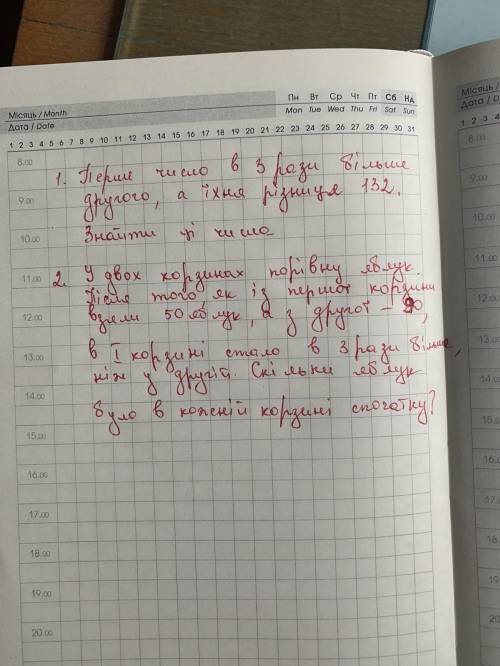 Місяць / Month
Пн Вт Ср Чт Пт Сб Нд
Mon Tue Wed Thu Fri Sat Sun
Дата / Date
1 2 3 4 5 6 7 8 9 10 11 12 13 14 15 16 17 18 19 20 21 22 23 24 25 26 27 28 29 30 31
8.00
1. Перше число в 3 рази більше
9.00 другого, а їхня різниця 132.
10.00 Знайти ці числа
11.00
2. У двох корзинах порівну яблук.
Після того як із першої корзини
12.00 взяли 50 яблук, а з другої – 90,
13.00 в I корзині стало в 3 рази більше,
ніж у другій. Скільки яблук
14.00
було в кожній корзині спочатку?
15.00
16.00
17.00
18.00
19.00
20.00
Місяць /
Дата / D
1 2 3 4
8.00
9.00
10.00
11.00
12.00
13.00
14.00
15.00
16.00
17.00
18.00
19.00
20.00